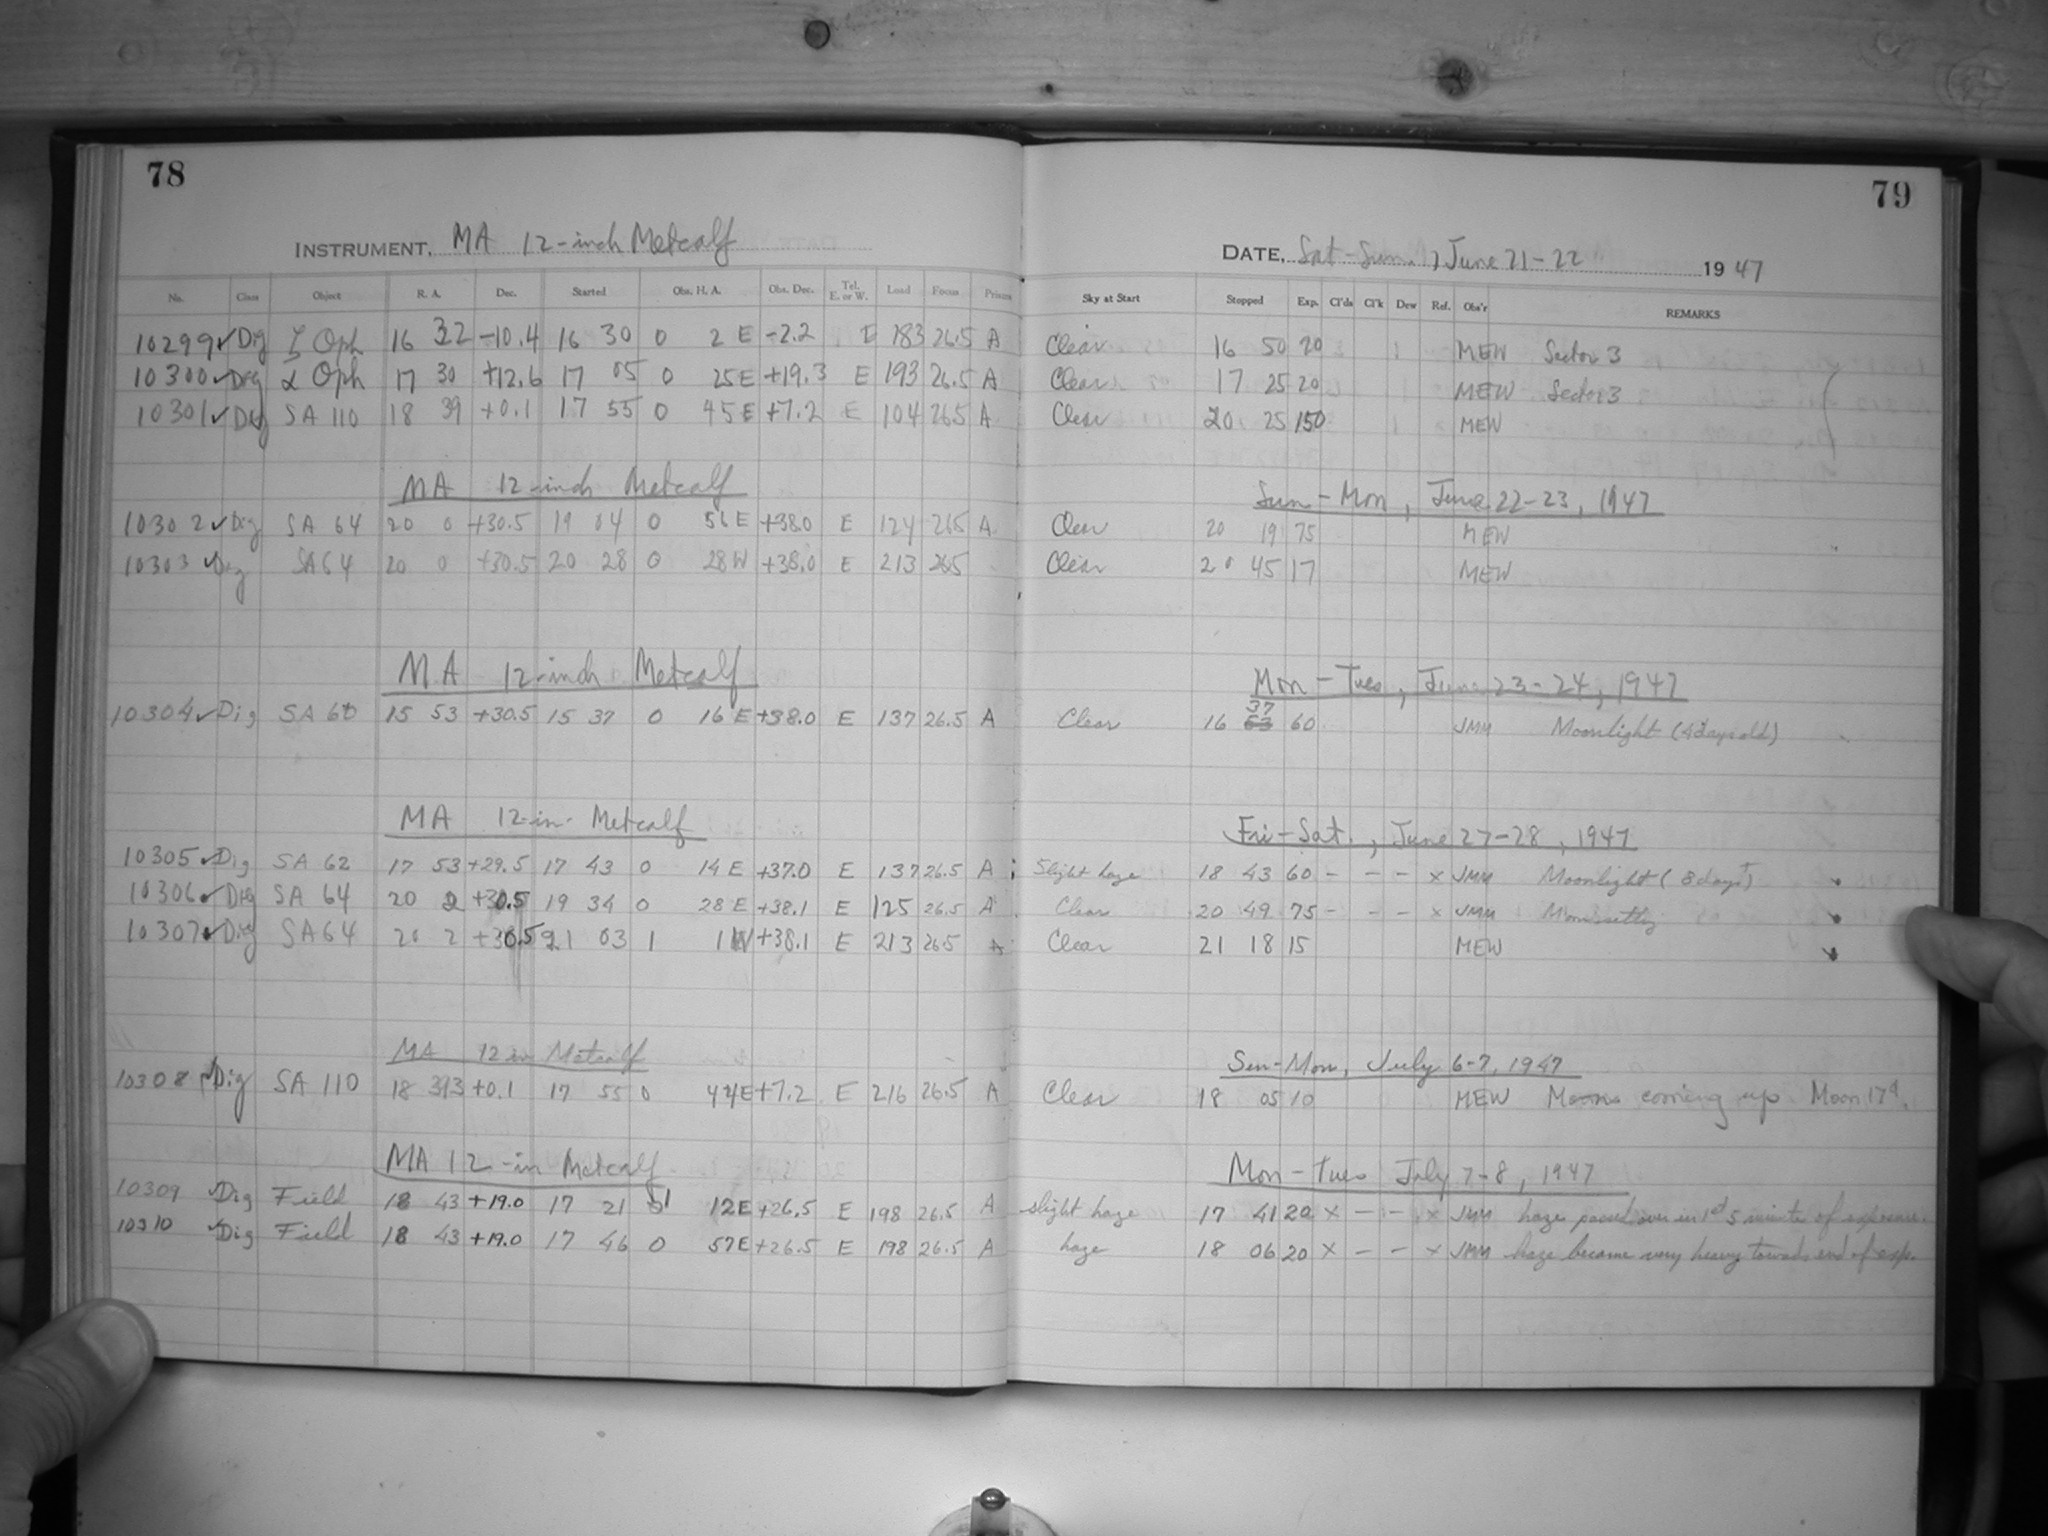 78
INSTRUMENT, MA 12-inch Metcalf
No. Class Object R. A. Dec. Started Obs. H. A. Obs. Dec. Tel. E. or W. Load Focus Prism
10299 ✓ Dig ζ Oph 16 32 -10.4 16 30 0 2 E -2.2 E 183 26.5 A
10300 ✓ Dig α Oph 17 30 +12.6 17 05 0 25 E +19.3 E 193 26.5 A
10301 ✓ Dig SA 110 18 39 +0.1 17 55 0 45 E +7.2 E 104 26.5 A
MA 12-inch Metcalf
10302 ✓ Dig SA 64 20 0 +30.5 19 04 0 56 E +38.0 E 124 26.5 A
10303 ✓ Dig SA 64 20 0 +30.5 20 28 0 28 W +38.0 E 213 26.5
MA 12-inch Metcalf
10304 ✓ Dig SA 60 15 53 +30.5 15 37 0 16 E +38.0 E 137 26.5 A
MA 12-in- Metcalf
10305 ✓ Dig SA 62 17 53 +29.5 17 43 0 14 E +37.0 E 137 26.5 A
10306 ✓ Dig SA 64 20 2 +30.5 19 34 0 28 E +38.1 E 125 26.5 A
10307 ✓ Dig SA 64 20 2 +30.5 21 03 1 1 W +38.1 E 213 26.5 A
MA 12 in Metcalf
10308 ✓ Dig SA 110 18 393 +0.1 17 55 0 44 E +7.2 E 216 26.5 A
MA 12-in Metcalf
10309 ✓ Dig Field 18 43 +19.0 17 21 1 12 E +26.5 E 198 26.5 A
10310 ✓ Dig Field 18 43 +19.0 17 46 0 57 E +26.5 E 198 26.5 A
79
DATE, Sat-Sun., June 21-22 1947
Sky at Start Stopped Exp. Cl'ds Cl'k Dew Ref. Obs'r REMARKS
Clear 16 50 20 MEW Sector 3
Clear 17 25 20 MEW Sector 3
Clear 20 25 150 MEW
Sun-Mon, June 22-23, 1947
Clear 20 19 75 MEW
Clear 20 45 17 MEW
Mon-Tues, June 23-24, 1947
Clear 16 53 37 60 JMM Moonlight (4 days old)
Fri-Sat., June 27-28, 1947
Slight haze 18 43 60 - - - x JMM Moonlight (8 days)
Clear 20 49 75 - - - x JMM Moonsetting
Clear 21 18 15 MEW
Sun-Mon, July 6-7, 1947
Clear 18 05 10 MEW Moons coming up Moon 17d.
Mon-Tues July 7-8, 1947
slight haze 17 41 20 x - - x JMM haze passed over in 1st 5 minute of exposure.
haze 18 06 20 x - - x JMM haze became very heavy towards end of exp.